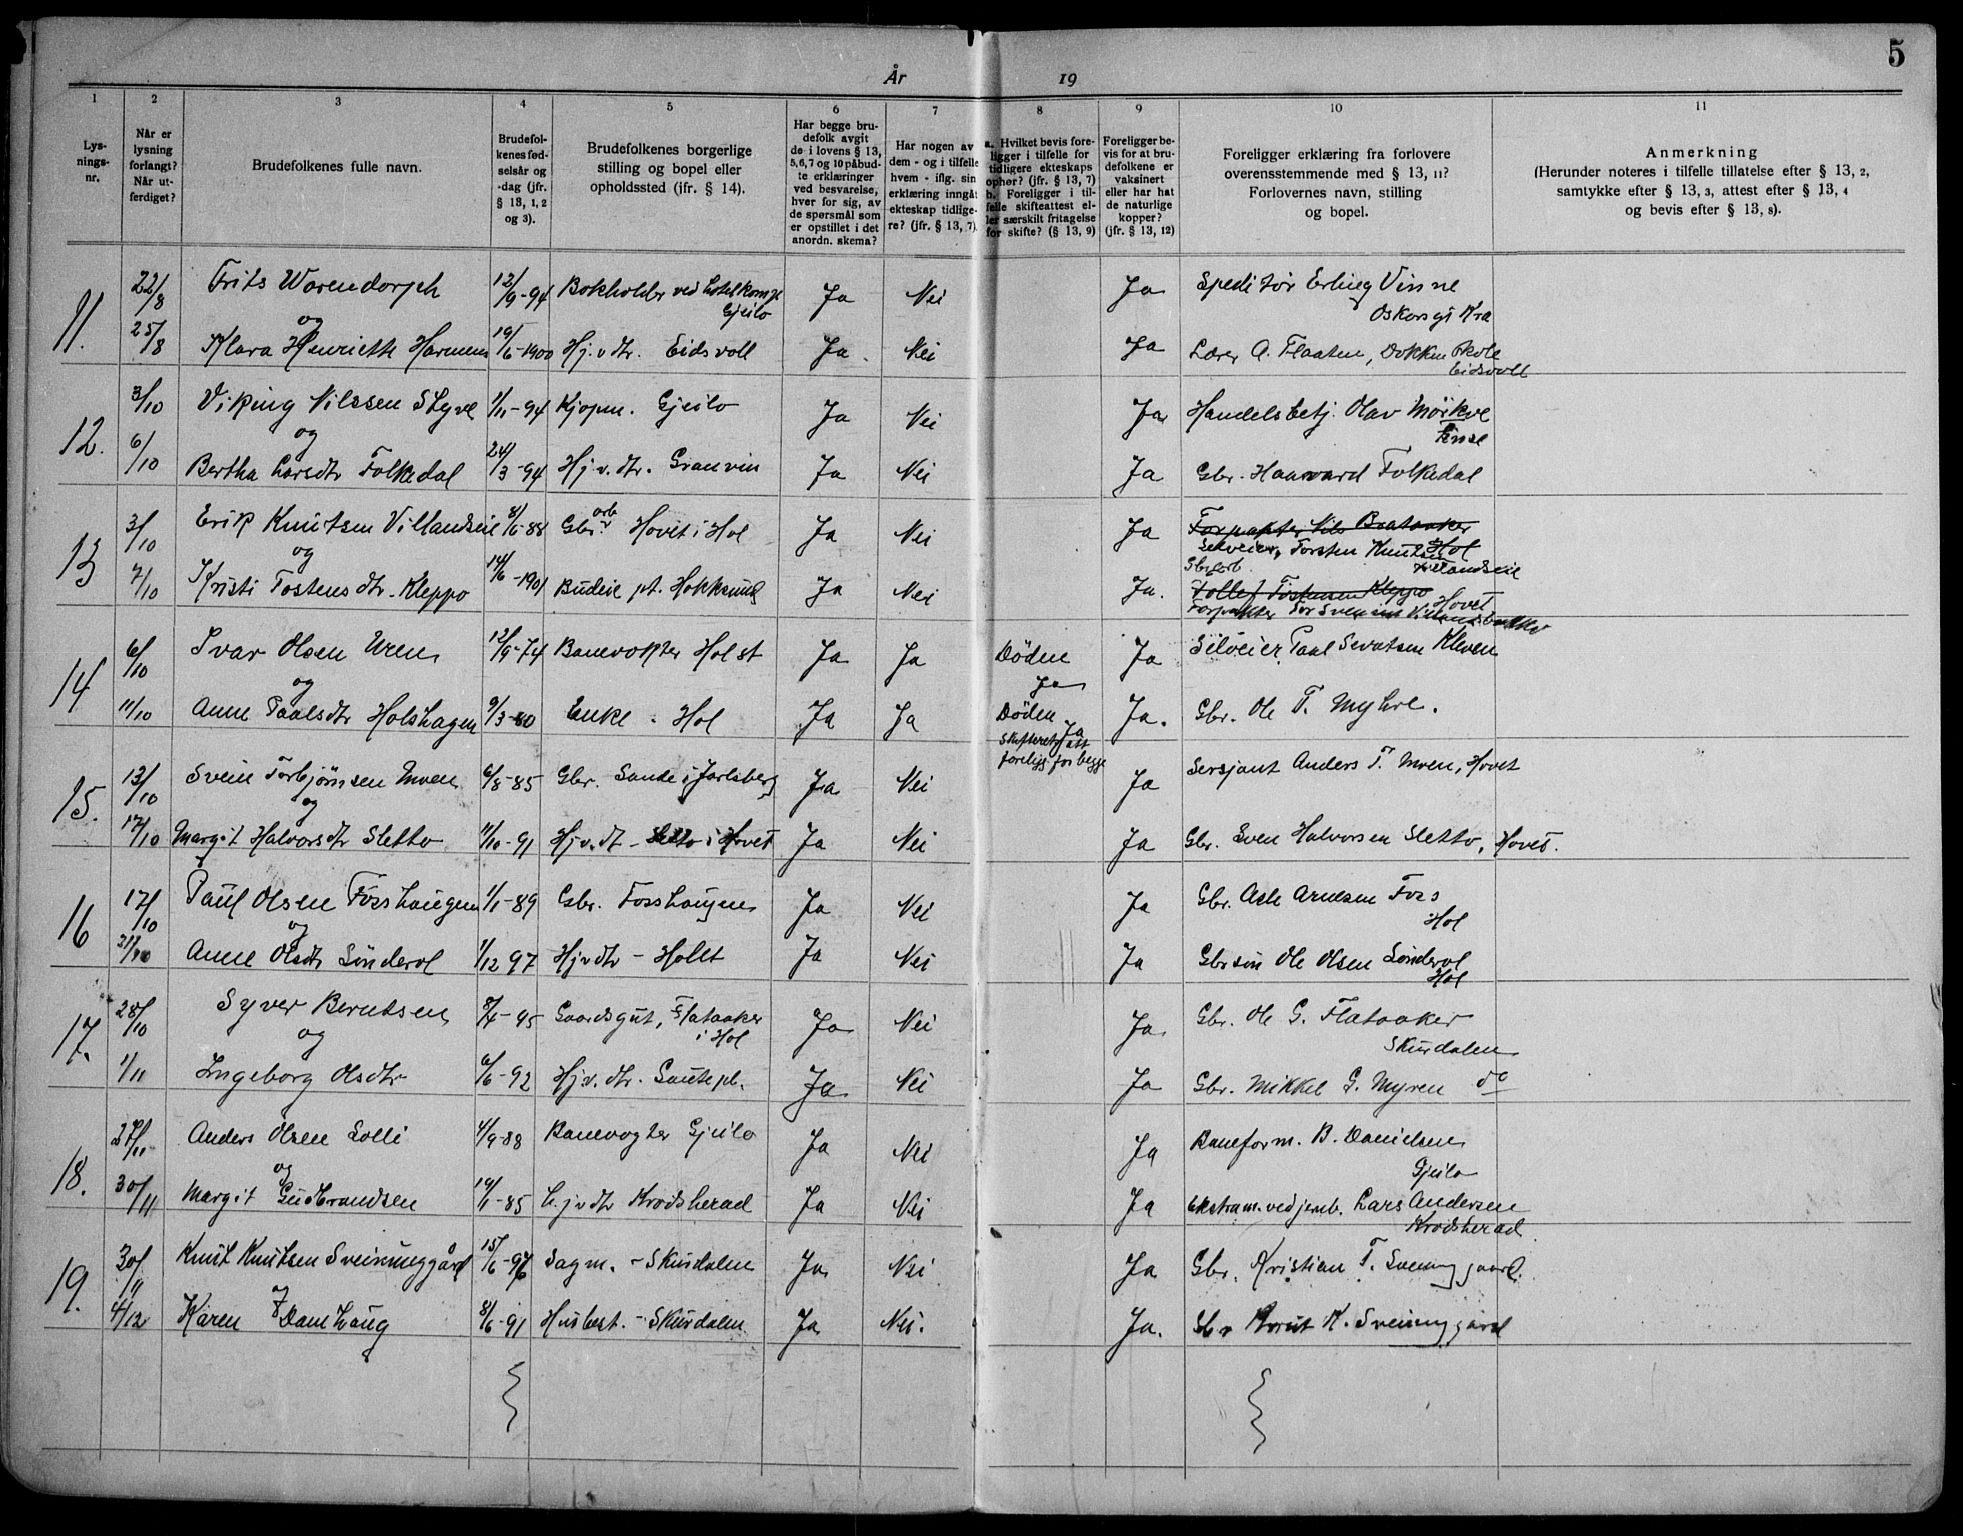 5
År 19
1 2 3 4 5 6 7 8 9 10 11
Lysnings-nr.
Når er lysning forlangt? Når utferdiget?
Brudefolkenes fulle navn.
Brudefolkenes fødselsår og -dag (jfr. § 13, 1, 2 og 3).
Brudefolkenes borgerlige stilling og bopel eller opholdssted (jfr. § 14).
Har begge brudefolk avgit de i lovens § 13, 5, 6, 7 og 10 påbudte erklæringer ved besvarelse, hver for sig, av de spørsmål som er opstillet i det anordn. skema?
Har nogen av dem - og i tilfelle hvem - iflg. sin erklæring inngåt ekteskap tidligere? (jfr. § 13, 7).
a. Hvilket bevis foreligger i tilfelle for tidligere ekteskaps ophør? (jfr. § 13, 7) b. Foreligger i tilfelle skifteattest eller særskilt fritagelse for skifte? (§ 13, 9)
Foreligger bevis for at brudefolkene er vaksinert eller har hat de naturlige kopper? (jfr. § 13, 12)
Foreligger erklæring fra forlovere overensstemmende med § 13, 11? Forlovernes navn, stilling og bopel.
Anmerkning (Herunder noteres i tilfelle tillatelse efter § 13, 2, samtykke efter § 13, 3, attest efter § 13, 4 og bevis efter § 13, 8).
11. 22/8 Frits Warendorph 12/9-94 Bokholder ved hotelkomp Gjeilo Ja Nei Ja Speditør Erling Vinne Oskarsgt Kra
og
25/8 Klara Henriette Harmens 19/6-1900 Hj.v.dtr. Eidsvoll Ja Nei Ja Lærer A. Flaaten, Dokken Skole Eidsvoll
12. 3/10 Viking Nilssen Styve 1/11-94 Kjøpm. Gjeilo Ja Nei Ja Handelsbetj. Olav Mörkve Finse
og
6/10 Bertha Larsdtr Folkedal 24/3-94 Hj.v.dtr. Granvin Ja Nei Ja Gbr. Haavard Folkedal
13 3/10 Erik Knutsen Villandseie 8/6-88 Gbr.arb Hovet i Hol Ja Nei Ja Forpakter Nils Brataaker Hol
Selveier, Torsten Knutsen Villandseie
og
7/10 Kristi Tostensdtr. Kleppo 14/6-1901 Budeie pt. Hokksund Ja Nei Ja. Gbrarb. Tollef Tostensen Kleppo Hovet
Forpakter Tor Svensen Villandsbakke
14 6/10 Ivar Olsen Uren 12/9-74 Banevokter Hol st Ja Ja Døden Ja Ja Selveier Paal Sevatsen Kleven
og
11/10 Anne Paalsdtr Holshagen 9/3-80 Enke - Hol Ja Ja Døden Ja Ja. Gbr. Ole T. Myhre.
Skifteretsatt foreligg for begge
15. 13/10 Svein Torbjørnsen Moen 6/8-85 Gbr. Sande i Jarlsberg Ja Nei Ja Sersjant Anders T. Moen, Hovet
og
17/10 Margit Halvorsdtr Sletto 11/10-91 Hj.v.dt - Sletto i Hovet Ja Nei Ja Gbr. Sven Halvorsen Sletto, Hovet.
16 17/10 Paul Olsen Fosshaugen 1/1-89 Gbr. Fosshaugen Ja Nei Ja Gbr. Asle Arnesen Foss Hol
og
21/10 Anne Olsdtr Sønderol 1/12 97 Hjvdtr - Hollt Ja Nei Ja Gbrsøn Ole Olsen Sønderol Hol
17. 28/10 Syver Berntsen 8/4-95 Gaardsgut, Flataaker i Hol Ja Nei Ja Gbr. Ole G. Flataaker Skurdalen
og
1/11 Ingeborg Olsdtr 6/6-92 Hj.v.dtr. Sautepl. Ja Nei Ja Gbr. Mikkel G. Myren do
18. 27/11 Anders Olsen Lolli 4/9-88 Banevogter Gjeilo Ja Nei Ja Baneform. B. Danielsen Gjeilo
og
30/11 Margit Gudbrandsen 19/1-85 h.jvdtr Krødsherad Ja Nei Ja Ekstram. ved jernb. Lars Andersen Krødsherad
19. 30/11 Knut Knutsen Sveinunggård 15/6-96 Sagm. - Skurdalen Ja Nei Ja Gbr. Kristian T. Sveinunggaard.
og
4/12 Karen Damhaug 8/6-91 Husbest. - Skurdalen Ja Nei. Ja. Gbr Knut K. Sveinunggård